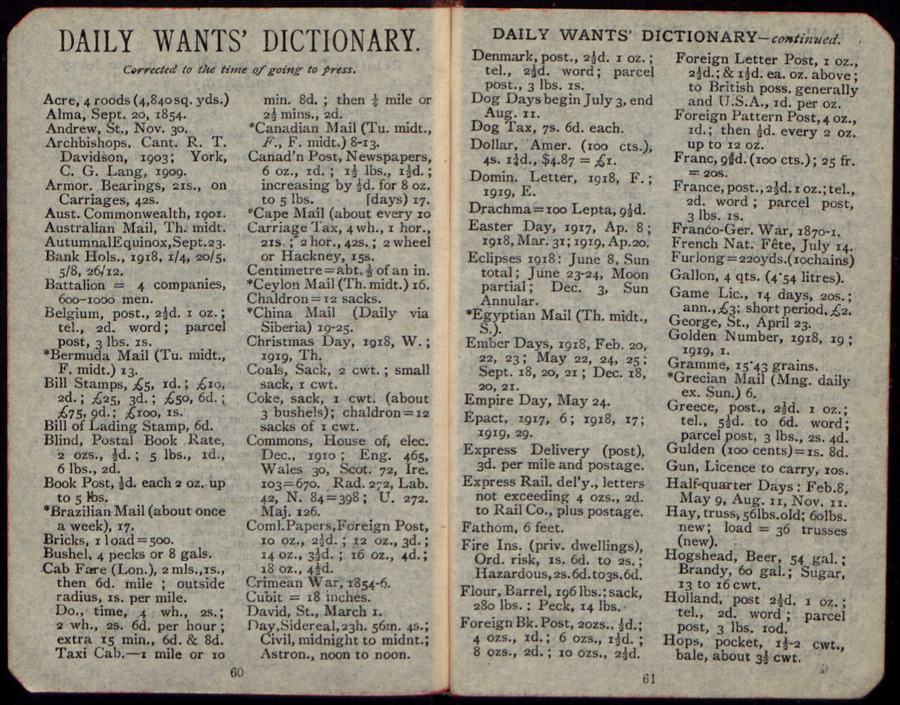 DAILY WANTS' DICTIONARY.
Corrected to the time of going to press.
Acre, 4 roods (4,840 sq. yds.)
Alma, Sept. 20, 1854.
Andrew, St., Nov. 30.
Archbishops, Cant. R. T.
Davidson, 1903; York,
C. G. Lang, 1909.
Armor. Bearings, 21s., on
Carriages, 42s.
Aust. Commonwealth, 1901.
Australian Mail, Th. midt.
Autumnal Equinox, Sept. 23.
Bank Hols., 1918, 1/4, 20/5,
5/8, 26/12.
Battalion = 4 companies,
600-1000 men.
Belgium, post., 2½d. 1 oz.;
tel., 2d. word; parcel
post, 3 lbs. 1s.
*Bermuda Mail (Tu. midt.,
F. midt.) 13.
Bill Stamps, £5, 1d.; £10,
2d.; £25, 3d.; £50, 6d.;
£75, 9d.; £100, 1s.
Bill of Lading Stamp, 6d.
Blind, Postal Book Rate,
2 ozs., ½d.; 5 lbs., 1d.,
6 lbs., 2d.
Book Post, ½d. each 2 oz. up
to 5 lbs.
*Brazilian Mail (about once
a week), 17.
Bricks, 1 load = 500.
Bushel, 4 pecks or 8 gals.
Cab Fare (Lon.), 2 mls., 1s.,
then 6d. mile; outside
radius, 1s. per mile.
Do., time, 4 wh., 2s.;
2 wh., 2s. 6d. per hour;
extra 15 min., 6d. & 8d.
Taxi Cab.—1 mile or 10
min. 8d.; then ¼ mile or
2½ mins., 2d.
*Canadian Mail (Tu. midt.,
F., F. midt.) 8-13.
Canad'n Post, Newspapers,
6 oz., 1d.; 1½ lbs., 1½d.;
increasing by ½d. for 8 oz.
to 5 lbs. [days) 17.
*Cape Mail (about every 10
Carriage Tax, 4 wh., 1 hor.,
21s.; 2 hor., 42s.; 2 wheel
or Hackney, 15s.
Centimetre = abt. ⅖ of an in.
*Ceylon Mail (Th. midt.) 16.
Chaldron = 12 sacks.
*China Mail (Daily via
Siberia) 19-25.
Christmas Day, 1918, W.;
1919, Th.
Coals, Sack, 2 cwt.; small
sack, 1 cwt.
Coke, sack, 1 cwt. (about
3 bushels); chaldron = 12
sacks of 1 cwt.
Commons, House of, elec.
Dec., 1910; Eng. 465,
Wales 30, Scot. 72, Ire.
103 = 670. Rad. 272, Lab.
42, N. 84 = 398; U. 272.
Maj. 126.
Coml. Papers, Foreign Post,
10 oz., 2½d.; 12 oz., 3d.;
14 oz., 3½d.; 16 oz., 4d.;
18 oz., 4½d.
Crimean War, 1854-6.
Cubit = 18 inches.
David, St., March 1.
Day, Sidereal, 23h. 56m. 4s.;
Civil, midnight to midnt.;
Astron., noon to noon.
60
DAILY WANTS' DICTIONARY—continued.
Denmark, post., 2½d. 1 oz.;
tel., 2½d. word; parcel
post., 3 lbs. 1s.
Dog Days begin July 3, end
Aug. 11.
Dog Tax, 7s. 6d. each.
Dollar, Amer. (100 cts.),
4s. 1½d., $4.87 = £1.
Domin. Letter, 1918, F.;
1919, E.
Drachma = 100 Lepta, 9½d.
Easter Day, 1917, Ap. 8;
1918, Mar. 31; 1919, Ap. 20.
Eclipses 1918: June 8, Sun
total; June 23-24, Moon
partial; Dec. 3, Sun
Annular.
*Egyptian Mail (Th. midt.,
S.).
Ember Days, 1918, Feb. 20,
22, 23; May 22, 24, 25;
Sept. 18, 20, 21; Dec. 18,
20, 21.
Empire Day, May 24.
Epact, 1917, 6; 1918, 17;
1919, 29.
Express Delivery (post),
3d. per mile and postage.
Express Rail. del'y., letters
not exceeding 4 ozs., 2d.
to Rail Co., plus postage.
Fathom, 6 feet.
Fire Ins. (priv. dwellings),
Ord. risk, 1s. 6d. to 2s.;
Hazardous, 2s. 6d. to 3s. 6d.
Flour, Barrel, 196 lbs.; sack,
280 lbs.: Peck, 14 lbs.
Foreign Bk. Post, 2 ozs., ½d.;
4 ozs., 1d.; 6 ozs., 1½d.;
8 ozs., 2d.; 10 ozs., 2½d.
Foreign Letter Post, 1 oz.,
2½d.; & 1½d. ea. oz. above;
to British poss. generally
and U.S.A., 1d. per oz.
Foreign Pattern Post, 4 oz.,
1d.; then ½d. every 2 oz.
up to 12 oz.
Franc, 9⅝d. (100 cts.); 25 fr.
= 20s.
France, post., 2½d. 1 oz.; tel.,
2d. word; parcel post,
3 lbs. 1s.
Franco-Ger. War, 1870-1.
French Nat. Fête, July 14.
Furlong = 220 yds. (10 chains)
Gallon, 4 qts. (4·54 litres).
Game Lic., 14 days, 20s.;
ann., £3; short period, £2.
George, St., April 23.
Golden Number, 1918, 19;
1919, 1.
Gramme, 15·43 grains.
*Grecian Mail (Mng. daily
ex. Sun.) 6.
Greece, post., 2½d. 1 oz.;
tel., 5½d. to 6d. word;
parcel post, 3 lbs., 2s. 4d.
Gulden (100 cents) = 1s. 8d.
Gun, Licence to carry, 10s.
Half-quarter Days: Feb. 8,
May 9, Aug. 11, Nov. 11.
Hay, truss, 56 lbs. old; 60 lbs.
new; load = 36 trusses
(new).
Hogshead, Beer, 54 gal.;
Brandy, 60 gal.; Sugar,
13 to 16 cwt.
Holland, post 2½d. 1 oz.;
tel., 2d. word; parcel
post, 3 lbs. 10d.
Hops, pocket, 1½-2 cwt.,
bale, about 3½ cwt.
61